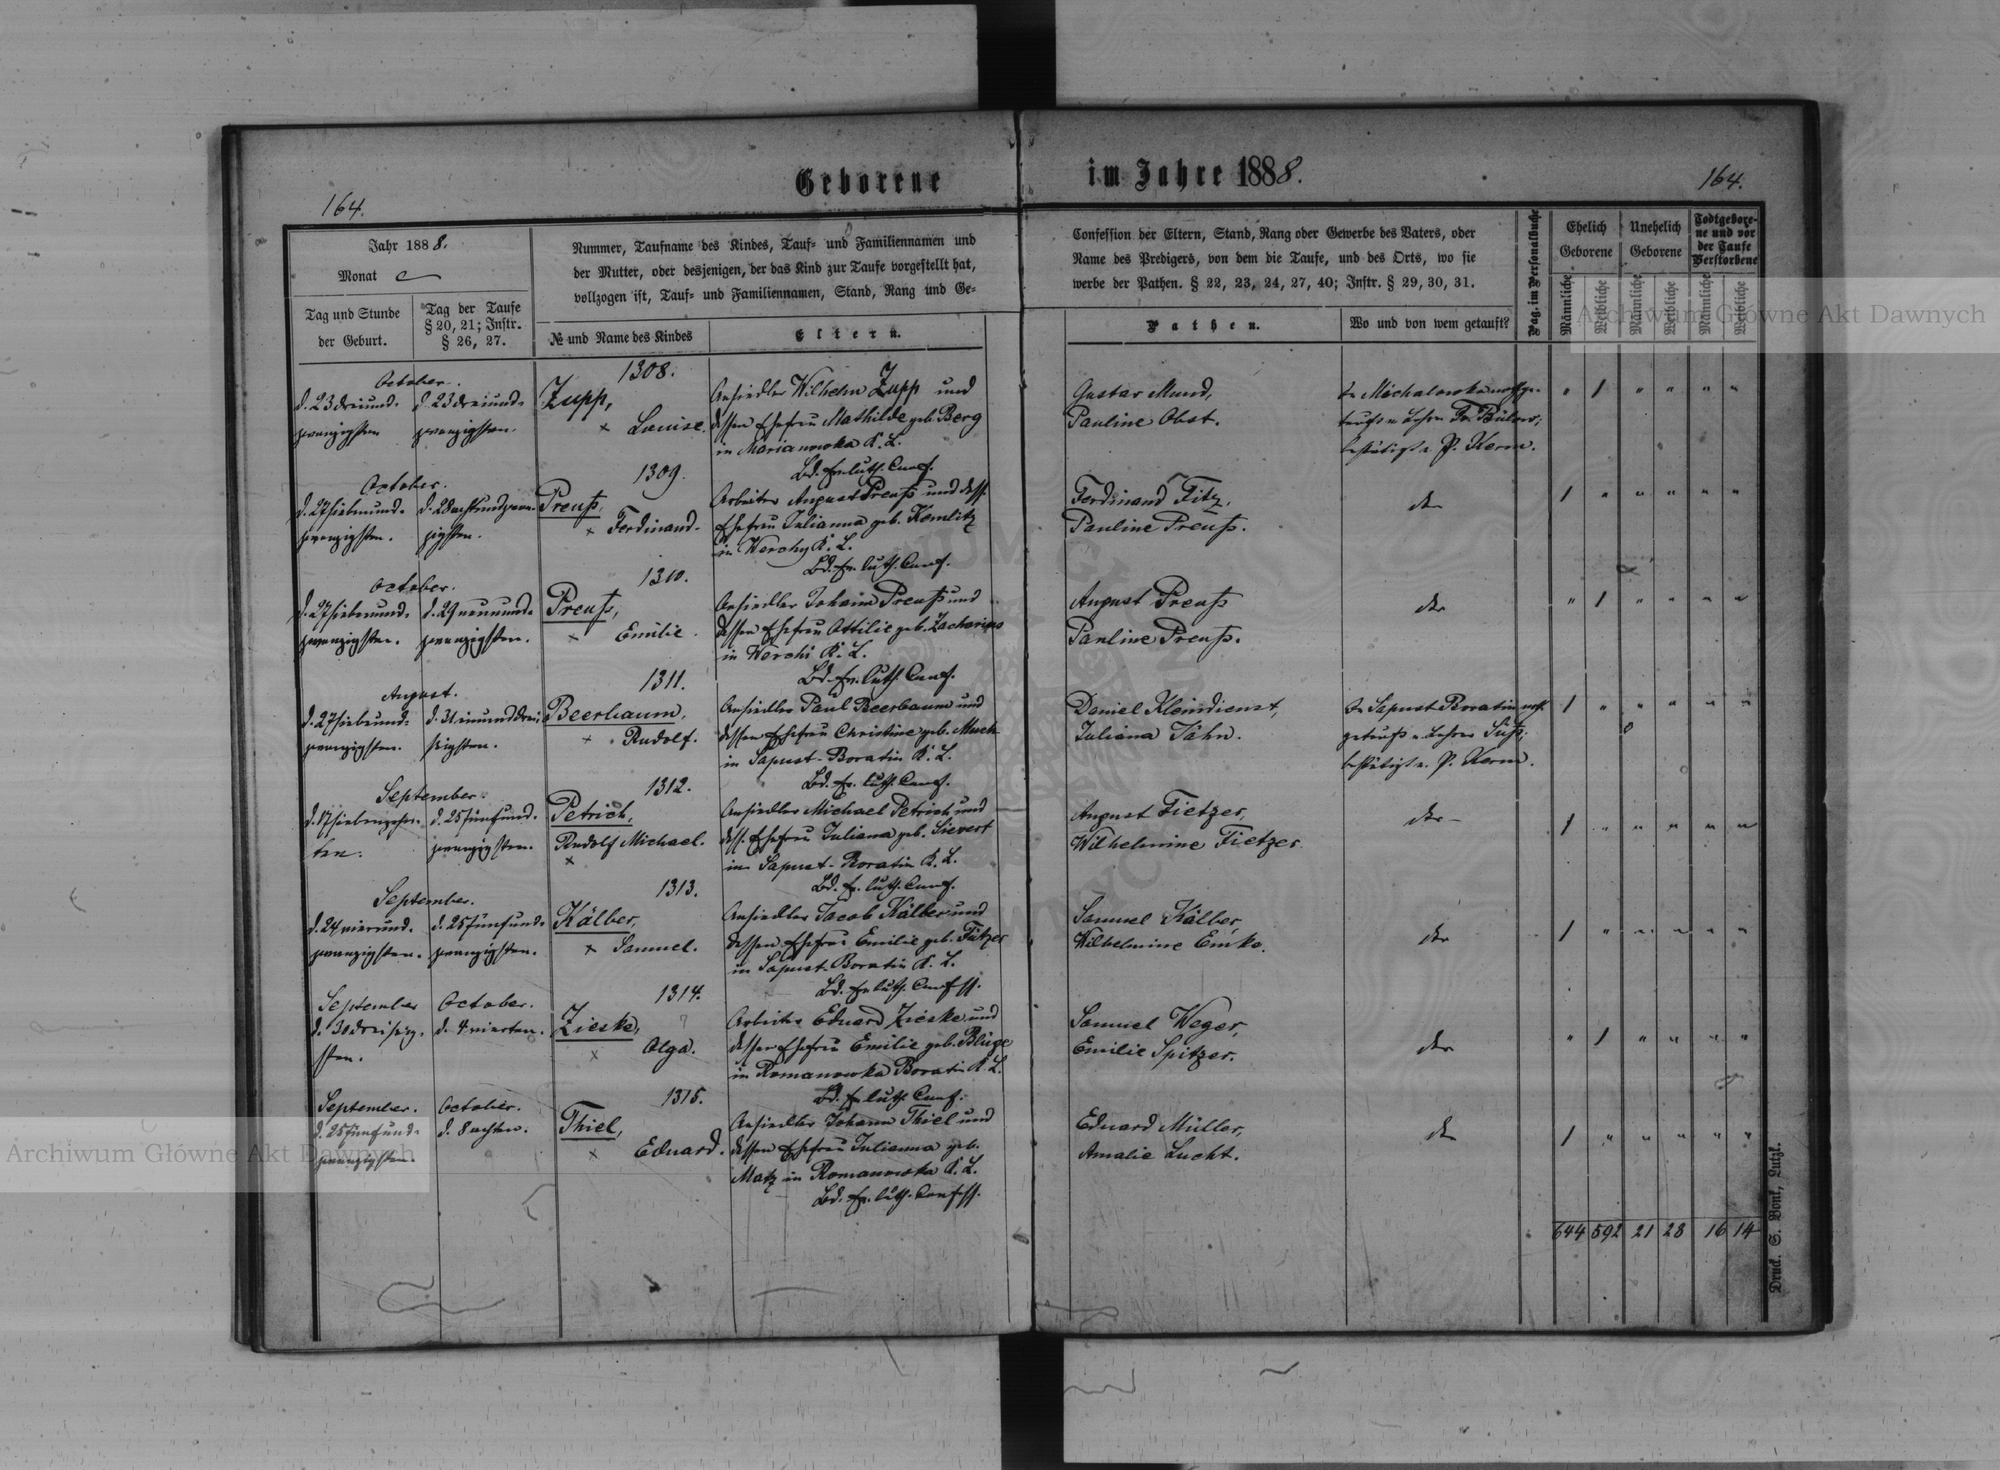 Geborene im Jahre 1888.
164.
164.
Jahr 1888.
Monat
Tag und Stunde
der Geburt.
Tag der Taufe
§ 20, 21; Instr.
§ 26, 27.
Nummer, Taufname des Kindes, Tauf- und Familiennamen und
der Mutter, oder desjenigen, der das Kind zur Taufe vorgestellt hat,
vollzogen ist, Tauf- und Familiennamen, Stand, Rang und Ge-
№ und Name des Kindes
Eltern.
Confession der Eltern, Stand, Rang oder Gewerbe des Vaters, oder
Name des Predigers, von dem die Taufe, und des Orts, wo sie
werbe der Pathen. § 22, 23, 24, 27, 40; Instr. § 29, 30, 31.
Pathen.
Wo und von wem getauft?
Pag. im Personalbuche
Ehelich
Geborene
Unehelich
Geborene
Todtgebore-
ne und vor
der Taufe
Verstorbene
Männliche
Weibliche
Männliche
Weibliche
Männliche
Weibliche
1308.
October.
d. 23 dreiund-
zwanzigsten
d. 23 dreiund-
zwanzigsten.
Zupp,
× Louise.
Ansiedler Wilhelm Zupp und
dessen Ehefrau Mathilde geb. Berg
in Marianowka K. L.
Bd. ev. luth. Conf.
Gustav Mund,
Pauline Obst.
In Michalowka nothge-
tauft v. Lehrer Fr. Bülow;
bestätigt v. P. Kerm.
1309.
October.
d. 27 siebenund-
zwanzigsten.
d. 28 achtundzwan-
zigsten.
Preuß,
× Ferdinand.
Arbeiter August Preuß und dess.
Ehefrau Julianna geb. Kemlitz
in Werchy K. L.
Bd. ev. luth. Conf.
Ferdinand Fitz,
Pauline Preuß.
dto
1310.
October.
d. 27 siebenund-
zwanzigsten.
d. 29 neunund-
zwanzigsten.
Preuß,
× Emilie.
Ansiedler Johann Preuß und
dessen Ehefrau Ottilie geb. Zacharias
in Werchi K. L.
Bd. ev. luth. Conf.
August Preuß
Pauline Preuß.
dto
1311.
August.
d. 27 siebenund-
zwanzigsten.
d. 31 einunddrei-
ßigsten.
Beerbaum,
× Rudolf.
Ansiedler Paul Beerbaum und
dessen Ehefrau Christine geb. Musch
in Sapust-Boratin K. L.
Bd. ev. luth. Conf.
Daniel Kleindienst,
Juliana Jähn.
In Sapust Boratin noth
getauft v. Lehrer Süß;
bestätigt v. P. Kerm.
1312.
September.
d. 17 siebenzehn-
ten.
d. 25 fünfund-
zwanzigsten.
Petrich,
Rudolf Michael.
×
Ansiedler Michael Petrich und
dess. Ehefrau Juliana geb. Sievert
in Sapust-Boratin K. L.
Bd. ev. luth. Conf.
August Tietzer,
Wilhelmine Tietzer.
dto
1313.
September.
d. 24 vierund-
zwanzigsten.
d. 25 fünfund-
zwanzigsten.
Kälber,
× Samuel.
Ansiedler Jacob Kälber und
dessen Ehefrau Emilie geb. Tützer
in Sapust-Boratin K. L.
Bd. ev. luth. Confss.
Samuel Kälber,
Wilhelmine Emke.
dto
1314.
September
d. 30 dreißig-
sten.
October.
d. 4 vierten.
Zieske,
× Olga.
Arbeiter Eduard Zieske und
dessen Ehefrau Emilie geb. Bluge
in Romanowka Boratin K. L.
Bd. ev. luth. Conf.
Samuel Weger,
Emilie Spitzer.
dto
1315.
September.
d. 25 fünfund-
zwanzigsten.
October.
d. 8 achten.
Thiel,
× Eduard.
Ansiedler Johann Thiel und
dessen Ehefrau Julianna geb.
Matz in Romanowka K. L.
Bd. ev. luth. Confss.
Eduard Müller,
Amalie Lucht.
dto
644 592 21 28 16 14
Druck. S. Bonk, Lutzk.
Archiwum Główne Akt Dawnych
Archiwum Główne Akt Dawnych